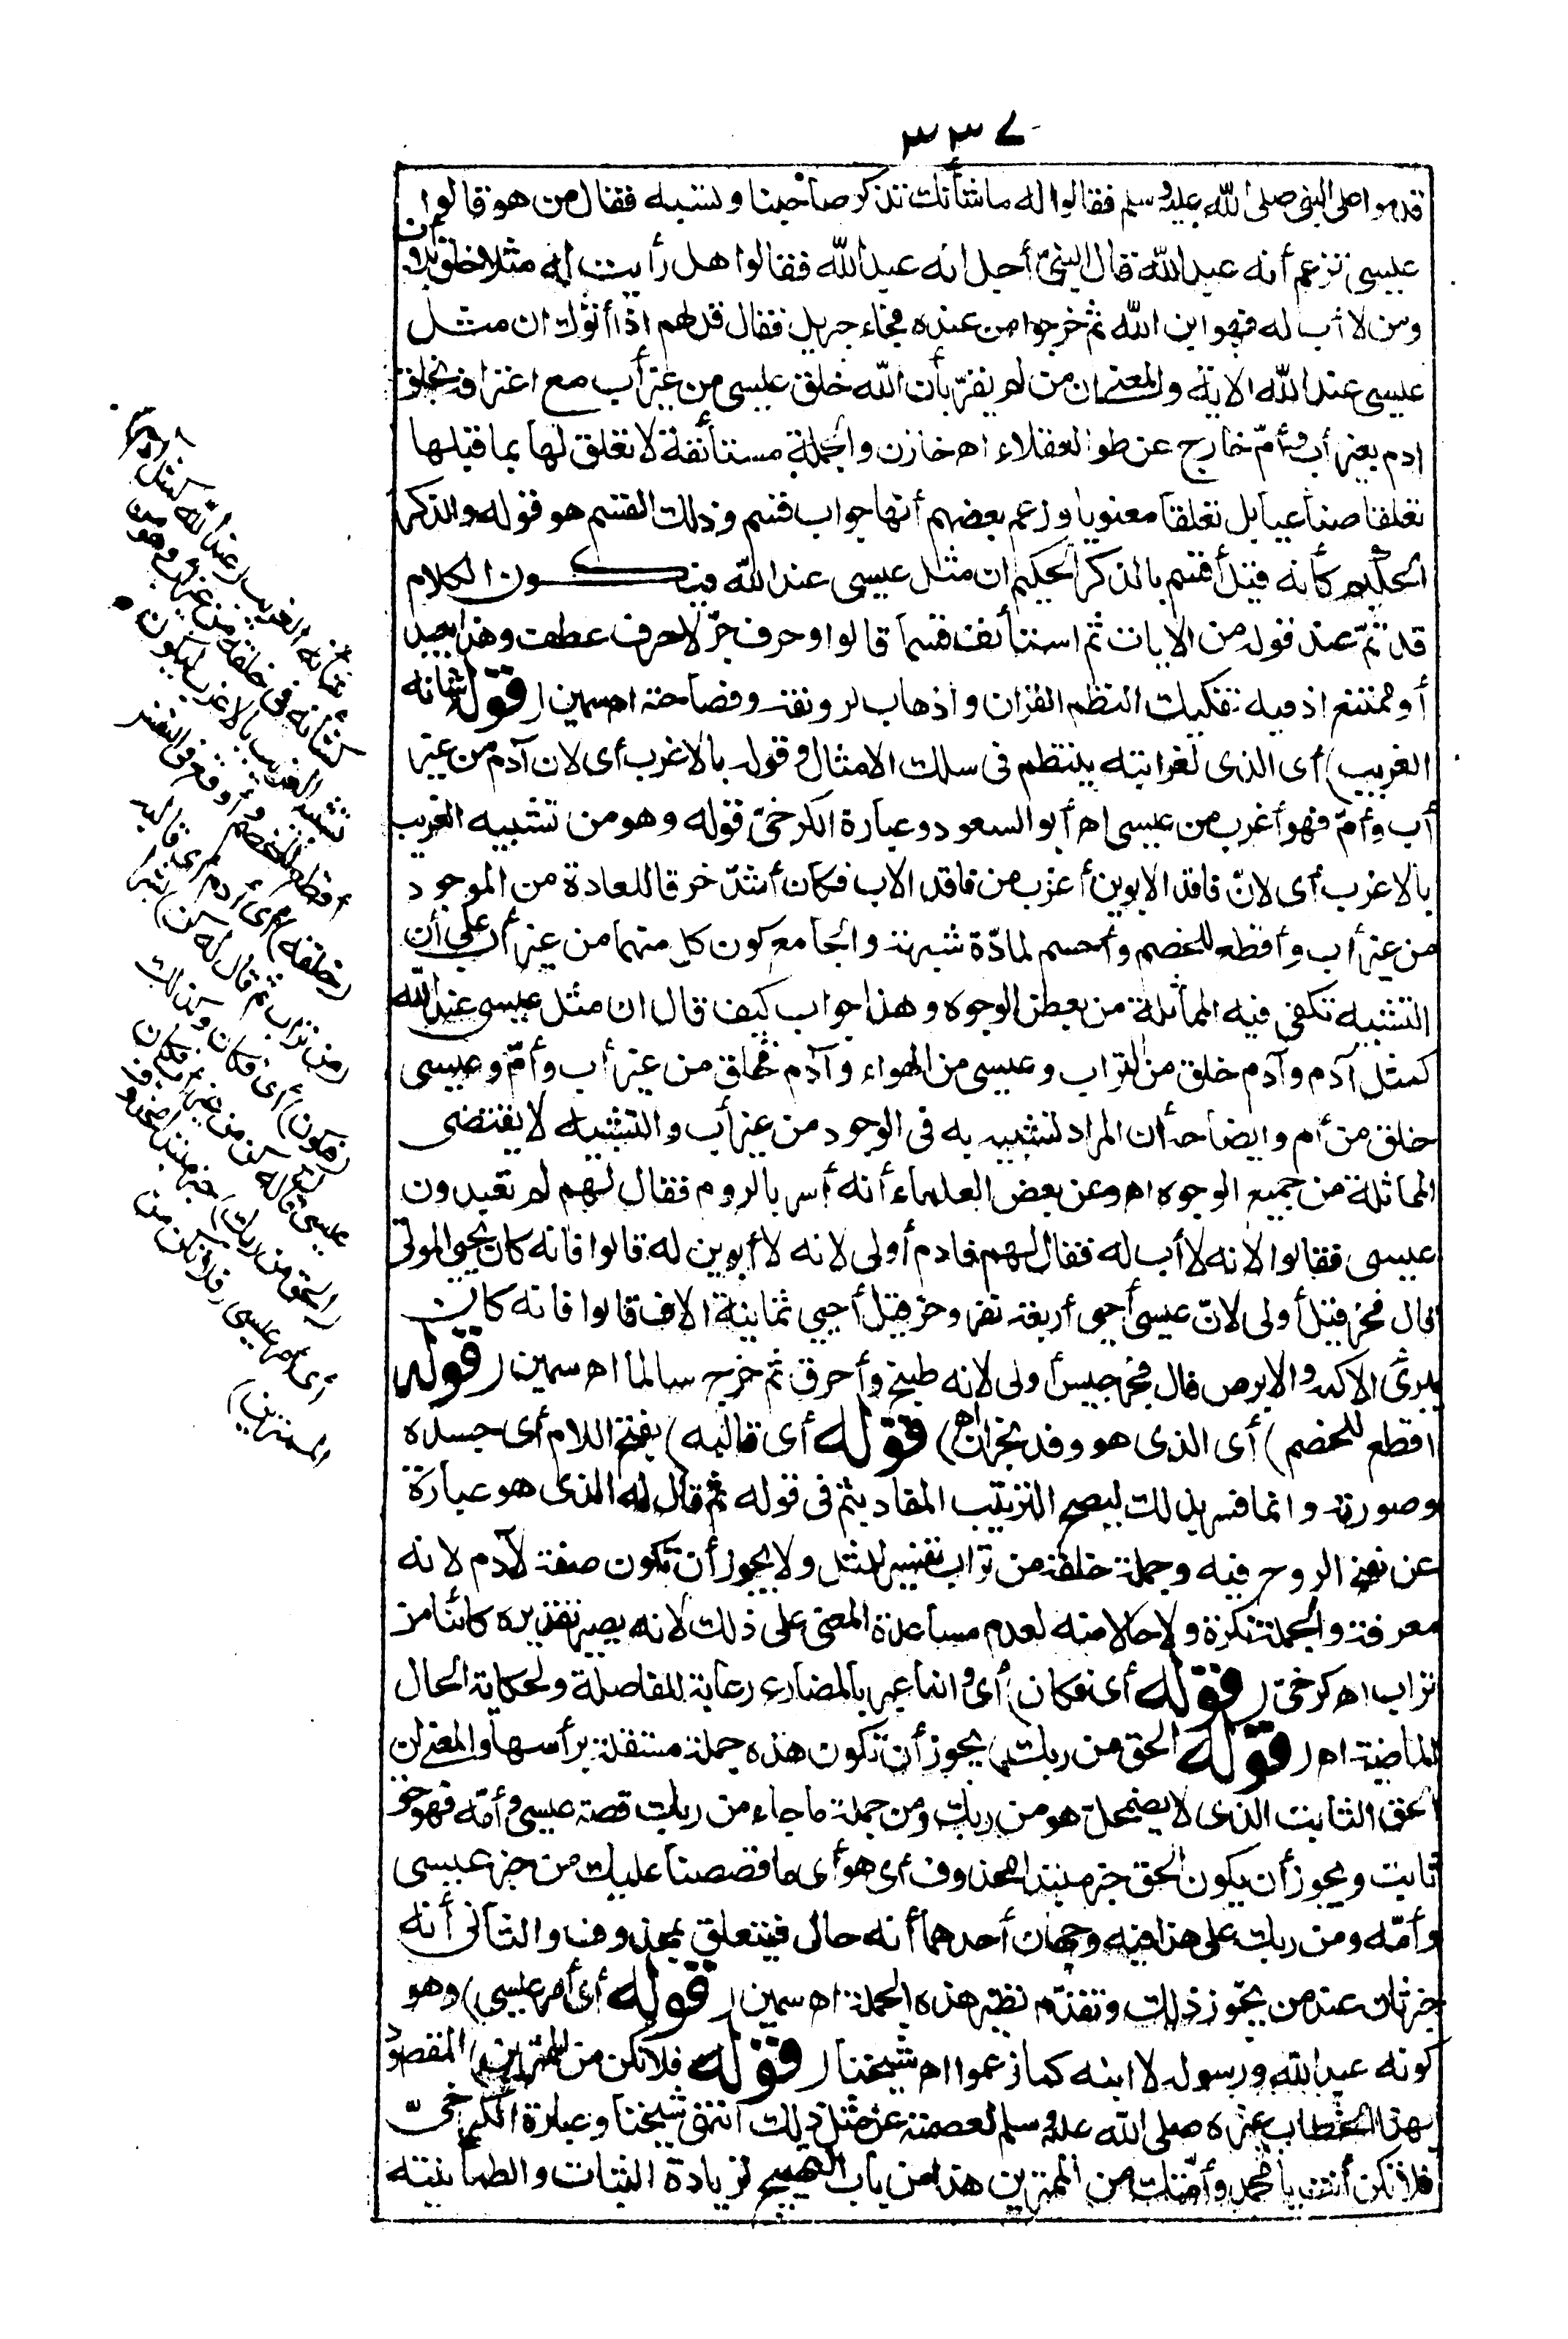 ٣٣٧
قدموا على النبى صلى الله عليه وسلم فقالوا له ما شأنك تذكر صاحبنا وتسبه فقال من هو قالوا
عيسى تزعم أنه عبد الله قال النبىّ أجل انه عبد الله فقالوا هل رأيت له مثلا خلق بلا أب
ومن لا أب له فهو ابن الله ثم خرجوا من عنده فجاء جبريل فقال قل لهم اذا أتوك ان مثل
عيسى عند الله الاية والمعنى ان من لم يقرّ بأن الله خلق عيسى من غير أب مع اعترافه بخلق
ادم بغير أب وأمّ خارج عن طور العقلاء اه خازن والجملة مستأنفة لا تعلق لها بما قبلها
تعلقا صناعيا بل تعلقا معنويا وزعم بعضهم أنها جواب قسم وذلك القسم هو قوله والذكر
الحكيم كأنه قيل أقسم بالذكر الحكيم ان مثل عيسى عند الله فيكون الكلام
قد تمّ عند قوله من الايات ثم استأنف قسما قالوا وحرف جرّ لا حرف عطف وهذا بعيد
أو ممتنع اذ فيه تفكيك النظم القران واذهاب لرونقه وفصاحته اه سمين (قوله شانه
الغريب) أى الذى لغرابته ينتظم فى سلك الامثال وقوله بالاغرب أى لان آدم من غير
أب وأمّ فهو أغرب من عيسى اه أبو السعود وعبارة الكرخىّ قوله وهو من تشبيه الغريب
بالاغرب أى لانّ فاقد الابوين أغرب من فاقد الاب فكان أشدّ خرقا للعادة من الموجود
من غير أب وأقطع للخصم وأحسم لمادّة شبهته والجامع كون كل منهما من غير أب على أن
التشبيه تكفى فيه المماثلة من بعض الوجوه وهذا جواب كيف قال ان مثل عيسى عند الله
كمثل آدم وآدم خلق من التراب وعيسى من الهواء وآدم خلق من غير أب وأمّ وعيسى
خلق من أم وايضاحه أن المراد تشبيهه به فى الوجود من غير أب والتشبيه لا يقتضى
المماثلة من جميع الوجوه اه وعن بعض العلماء أنه أسر بالروم فقال لهم لم تعبدون
عيسى فقالوا لانه لا أب له فقال لهم فادم أولى لانه لا أبوين له قالوا فانه كان يحيى الموتى
قال فحزقيل أولى لانّ عيسى أحيى أربعة نفر وحزقيل أحيى ثمانية الاف قالوا فانه كان
يبرئ الاكمه والابرص قال فجرجيس أولى لانه طبخ وأحرق ثم خرج سالما اه سمين (قوله
اقطع للخصم) أى الذى هو وفد نجران اه (قوله أى قالبه) بفتح اللام أى جسده
وصورته وانما فسر بذلك ليصح الترتيب المفاد بثم فى قوله ثم قال له الذى هو عبارة
عن نفخ الروح فيه وجملة خلقه من تراب تفسير للمثل ولا يجوز أن تكون صفة لآدم لانه
معرفة والجملة نكرة ولا حالا منه لعدم مساعدة المعنى على ذلك لانه يصير تقديره كائنا من
تراب اه كرخىّ (قوله أى فكان) أى وانما عبر بالمضارع رعاية للفاصلة ولحكاية الحال
الماضية اه (قوله الحق من ربك) يجوز أن تكون هذه جملة مستقلة برأسها والمعنى ان
الحق الثابت الذى لا يضمحلّ هو من ربك ومن جملة ما جاء من ربك قصة عيسى وأمّه فهو حق
ثابت ويجوز أن يكون الحق خبر مبتدا محذوف أى هو أى ما قصصنا عليك من خبر عيسى
وأمّه ومن ربك على هذا فيه وجهان أحدهما أنه حال فيتعلق بمحذوف والثانى أنه
خبر ثان عند من يجوّز ذلك وتقدّم نظير هذه الجملة اه سمين (قوله أى أمر عيسى) وهو
كونه عبد الله ورسوله لا ابنه كما زعموا اه شيخنا (قوله فلا تكن من الممترين) المقصود
بهذا الخطاب غيره صلى الله عليه وسلم لعصمته عن مثل ذلك انتهى شيخنا وعبارة الكرخىّ
فلا تكن أنت يا محمد وأمّتك من الممترين هذا من باب التهييج لزيادة الثبات والطمأنينة
شأنه الغريب (عند الله كمثل آدم)
كشأنه فى خلقه من غير أب وهو من
تشبيه الغريب بالاغرب ليكون
أقطع للخصم وأوقع فى النفس
(خلقه) أى آدم أى قالبه
(من تراب ثم قال له كن) بشرا
(فيكون) أى فكان وكذلك
عيسى قال له كن من غير أب فكان
(الحق من ربك) خبر مبتدا محذوف
أى أمر عيسى (فلا تكن من
الممترين)